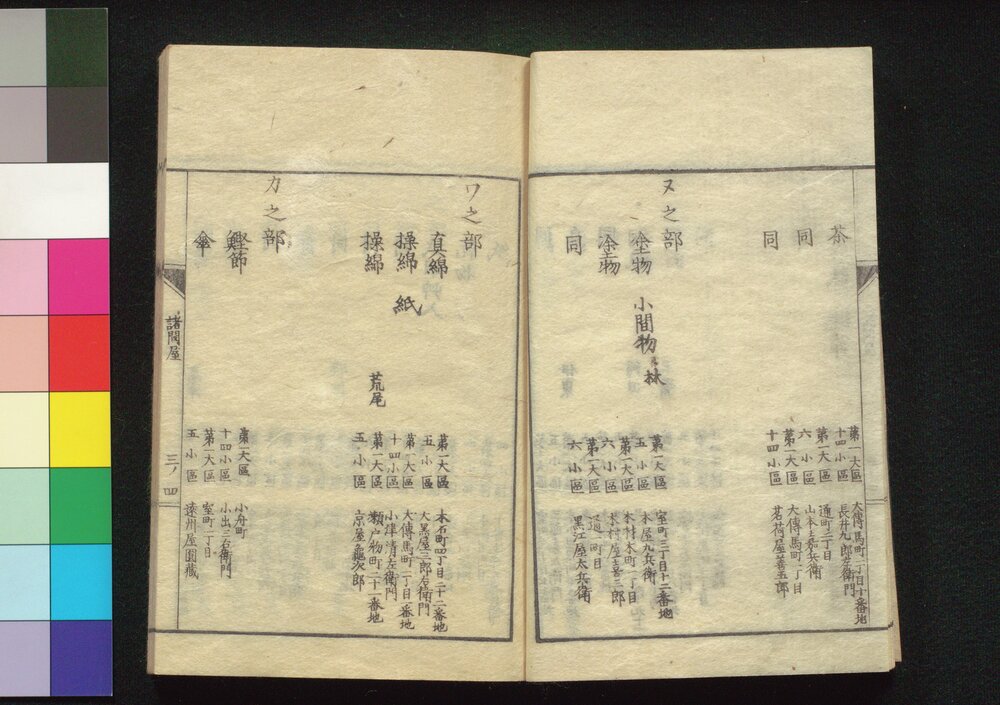 茶
第一大區
十四小區
大傳馬町一丁目十番地
長井九郎左衛門
同
第一大區
六小區
通町二丁目
山本嘉兵衛
同
第一大區
十四小區
大傳馬町一丁目
茗荷屋善五郎
ヌ之部
塗物 小間物
林
第一大區
五小區
室町三丁目十二番地
木屋九兵衛
塗物
第一大區
六小區
木村木町一丁目
木村屋喜三郎
同
第一大區
六小區
通一町目
黒江屋太兵衛
ワ之部
真綿
第一大區
五小區
本石町四丁目二十二番地
大黒屋三郎左衛門
操綿 紙
第一大區
十四小區
大傳馬町一丁目番地
小津清左衛門
操綿
荒尾
第一大區
五小區
瀬戸物町二十一番地
京屋龜次郎
カ之部
鰹節
第一大區
十四小區
小舟町
小出三右衛門
傘
第一大區
五小區
室町一丁目
遠州屋圓藏
諸問屋
三ノ四